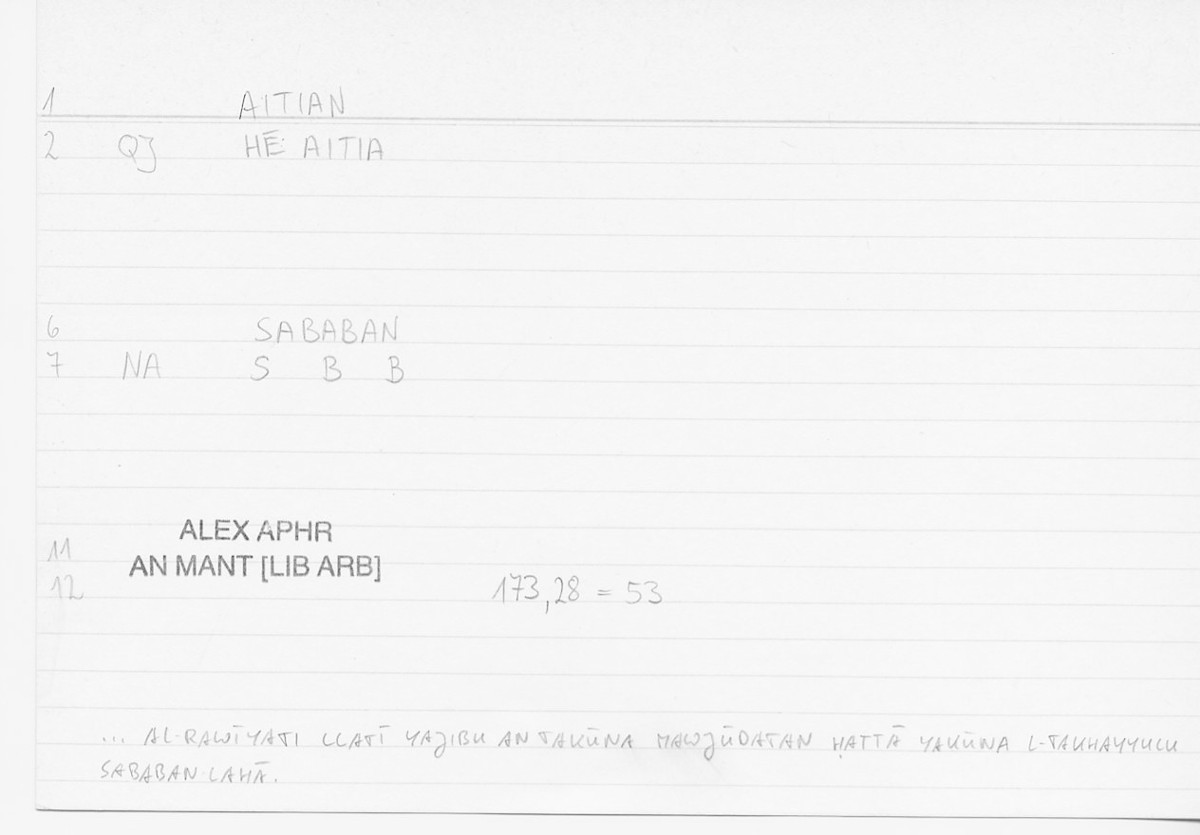 1 AITIAN
2 QJ HĒ AITIA
6 SABABAN
7 NA S B B
ALEX APHR
11
AN MANT [LIB ARB]
12 173,28 = 53
... AL-RAWĪYATI LLATĪ YAJIBU AN TAKŪNA MAWJŪDATAN ḤATTĀ YAKŪNA L-TAKHAYYULU
SABABAN LAHĀ.